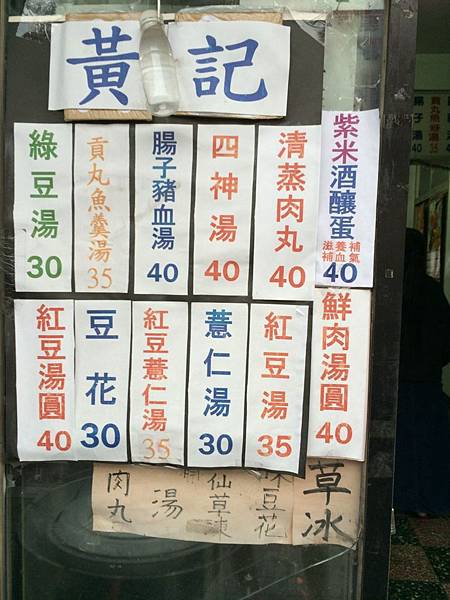 黃記
紫米酒釀蛋
滋養補
補血氣
40
清蒸肉丸
40
四神湯
40
腸子豬血湯
40
貢丸魚羹湯
35
綠豆湯
30
鮮肉湯圓
40
紅豆湯
35
薏仁湯
30
紅豆薏仁湯
35
豆花
30
紅豆湯圓
40
草冰
豆花
仙草凍
湯
肉丸